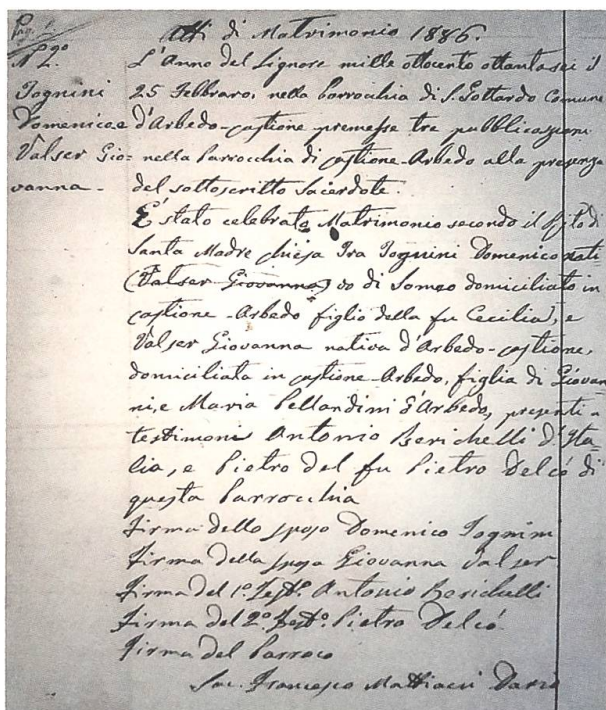 Pag. 1
Atti di Matrimonio 1886.
N 2°
Tognini
Domenico e
Valser Gio=
vanna -
L'Anno del Signore mille ottocento ottantasei il
25 Febbraro, nella parrocchia di S. Gottardo Comune
d'Arbedo-castione premesse tre pubblicazioni
nella Parrocchia di castione-Arbedo alla presenza
del sottoscritto sacerdote.
E' stato celebrato Matrimonio secondo il Rito di
Santa Madre chiesa Tra Tognini Domenico nati
(Valser Giovanna) vo di Someo domiciliato in
castione-Arbedo figlio della fu Cecilia, e
Valser Giovanna nativa d'Arbedo-castione,
domiciliata in castione-Arbedo, figlia di Giovan
ni, e Maria Pellandini d'Arbedo, presenti a
testimoni Antonio Berichelli d'Ita-
lia, e Pietro del fu Pietro Delcó di
questa Parrocchia
Firma dello sposo Domenico Tognini
Firma della sposa Giovanna Valser
Firma del 1° Test°. Antonio Berichelli
Firma del 2° Test°. Pietro Delcó
Firma del Parroco
Sac. Francesco